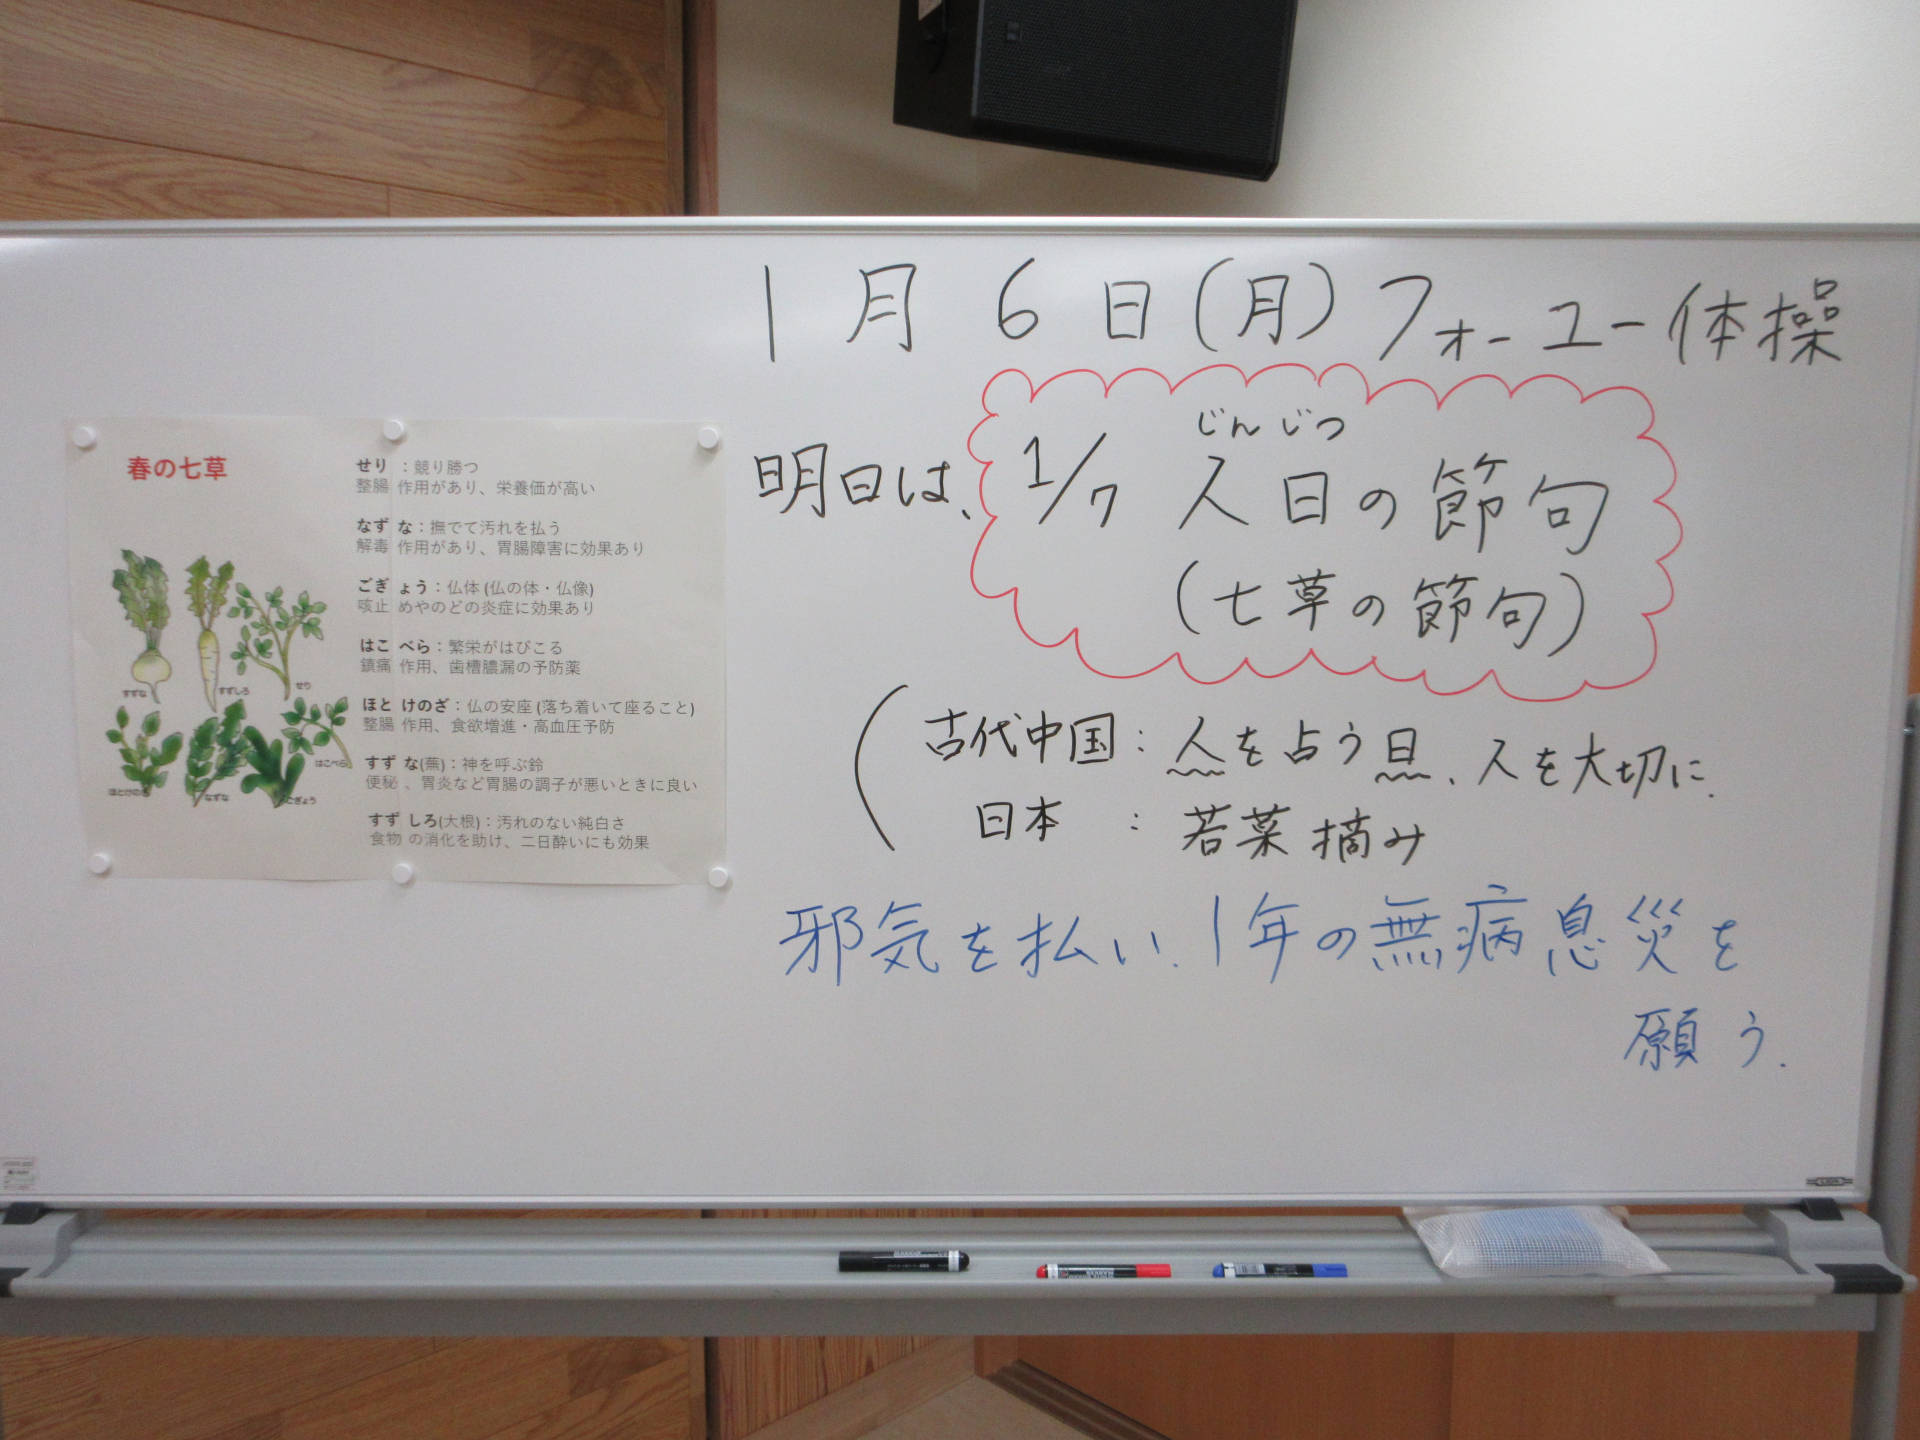 1月6日(月)フォーユー体操
明日は、1/7 人日の節句
じんじつ
(七草の節句)
古代中国：人を占う日、人を大切に.
日本：若菜摘み
邪気を払い、1年の無病息災を
願う.
春の七草
せり：競り勝つ
整腸作用があり、栄養価が高い
なずな：撫でて汚れを払う
解毒作用があり、胃腸障害に効果あり
ごぎょう：仏体(仏の体・仏像)
咳止めやのどの炎症に効果あり
はこべら：繁栄がはびこる
鎮痛作用、歯槽膿漏の予防薬
ほとけのざ：仏の安座(落ち着いて座ること)
整腸作用、食欲増進・高血圧予防
すずな(蕪)：神を呼ぶ鈴
便秘、胃炎など胃腸の調子が悪いときに良い
すずしろ(大根)：汚れのない純白さ
食物の消化を助け、二日酔いにも効果
すずな
すずしろ
せり
ほとけのざ
なずな
ごぎょう
はこべら
LION